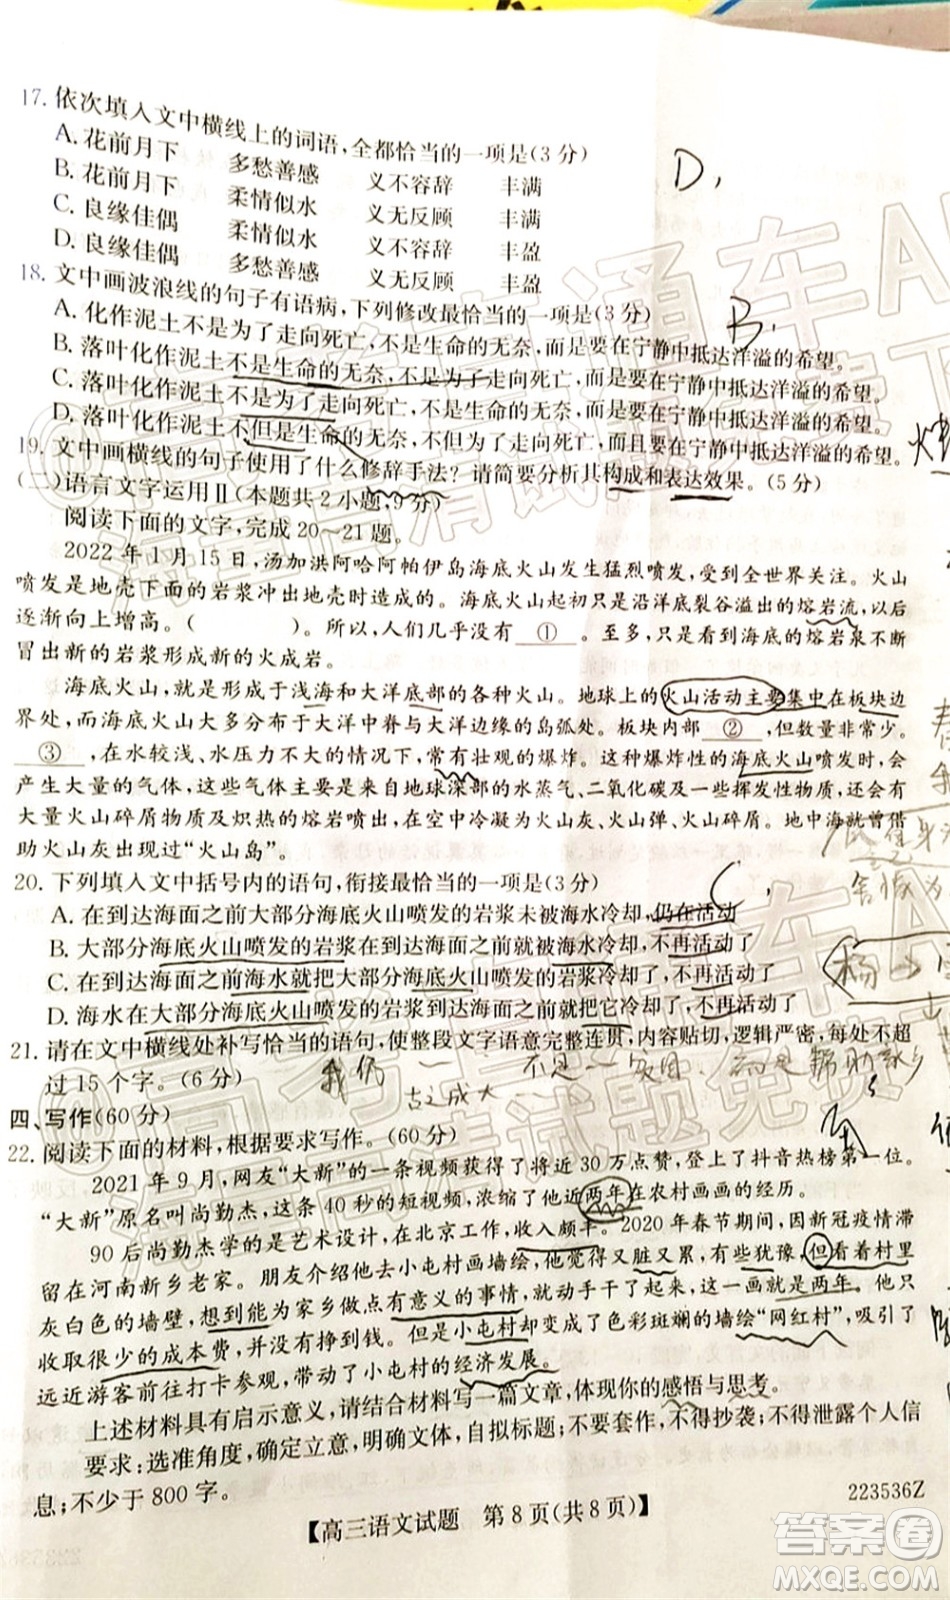 17. 依次填入文中横线上的词语,全都恰当的一项是(3分)
A. 花前月下 多愁善感 义不容辞 丰满
B. 花前月下 柔情似水 义无反顾 丰满
C. 良缘佳偶 柔情似水 义不容辞 丰盈
D. 良缘佳偶 多愁善感 义无反顾 丰盈
D.
18. 文中画波浪线的句子有语病,下列修改最恰当的一项是(3分)
B.
A. 化作泥土不是为了走向死亡,不是生命的无奈,而是要在宁静中抵达洋溢的希望。
B. 落叶化作泥土不是生命的无奈,不是为了走向死亡,而是要在宁静中抵达洋溢的希望。
C. 落叶化作泥土不是为了走向死亡,不是生命的无奈,而是要在宁静中抵达洋溢的希望。
D. 落叶化作泥土不但是生命的无奈,不是为了走向死亡,而是要在宁静中抵达洋溢的希望。
19. 文中画横线的句子使用了什么修辞手法?请简要分析其构成和表达效果。(5分)
(二)语言文字运用Ⅱ(本题共2小题,9分)
阅读下面的文字,完成20~21题。
2022年1月15日,汤加洪阿哈阿帕伊岛海底火山发生猛烈喷发,受到全世界关注。火山
喷发是地壳下面的岩浆冲出地壳时造成的。海底火山起初只是沿洋底裂谷溢出的熔岩流,以后
逐渐向上增高。( )。所以,人们几乎没有 ① 。至多,只是看到海底的熔岩泉不断
冒出新的岩浆形成新的火成岩。
海底火山,就是形成于浅海和大洋底部的各种火山。地球上的火山活动主要集中在板块边
界处,而海底火山大多分布于大洋中脊与大洋边缘的岛弧处。板块内部 ② ,但数量非常少。
③ ,在水较浅、水压力不大的情况下,常有壮观的爆炸。这种爆炸性的海底火山喷发时,会
产生大量的气体,这些气体主要是来自地球深部的水蒸气、二氧化碳及一些挥发性物质,还会有
大量火山碎屑物质及炽热的熔岩喷出,在空中冷凝为火山灰、火山弹、火山碎屑。地中海就曾借
助火山灰出现过“火山岛”。
20. 下列填入文中括号内的语句,衔接最恰当的一项是(3分)
C.
A. 在到达海面之前大部分海底火山喷发的岩浆未被海水冷却,仍在活动
B. 大部分海底火山喷发的岩浆在到达海面之前就被海水冷却,不再活动了
C. 在到达海面之前海水就把大部分海底火山喷发的岩浆冷却,不再活动了
D. 海水在大部分海底火山喷发的岩浆到达海面之前就把它冷却,不再活动了
21. 请在文中横线处补写恰当的语句,使整段文字语意完整连贯,内容贴切,逻辑严密,每处不超
过15个字。(6分)
四、写作(60分)
22. 阅读下面的材料,根据要求写作。(60分)
2021年9月,网友“大新”的一条视频获得了将近30万点赞,登上了抖音热榜第一位。
“大新”原名叫尚勤杰,这条40秒的短视频,浓缩了他近两年在农村画画的经历。
90后尚勤杰学的是艺术设计,在北京工作,收入颇丰。2020年春节期间,因新冠疫情滞
留在河南新乡老家。朋友介绍他去小屯村画墙绘,他觉得又脏又累,有些犹豫,但看着村里
灰白色的墙壁,想到能为家乡做点有意义的事情,就动手干了起来,这一画就是两年。他只
收取很少的成本费,并没有挣到钱。但是小屯村却变成了色彩斑斓的墙绘“网红村”,吸引了
远近游客前往打卡参观,带动了小屯村的经济发展。
上述材料具有启示意义,请结合材料写一篇文章,体现你的感悟与思考。
要求:选准角度,确定立意,明确文体,自拟标题;不要套作,不得抄袭;不得泄露个人信
息;不少于800字。
【高三语文试题 第8页(共8页)】
223536Z
答案圈
MXQE.COM